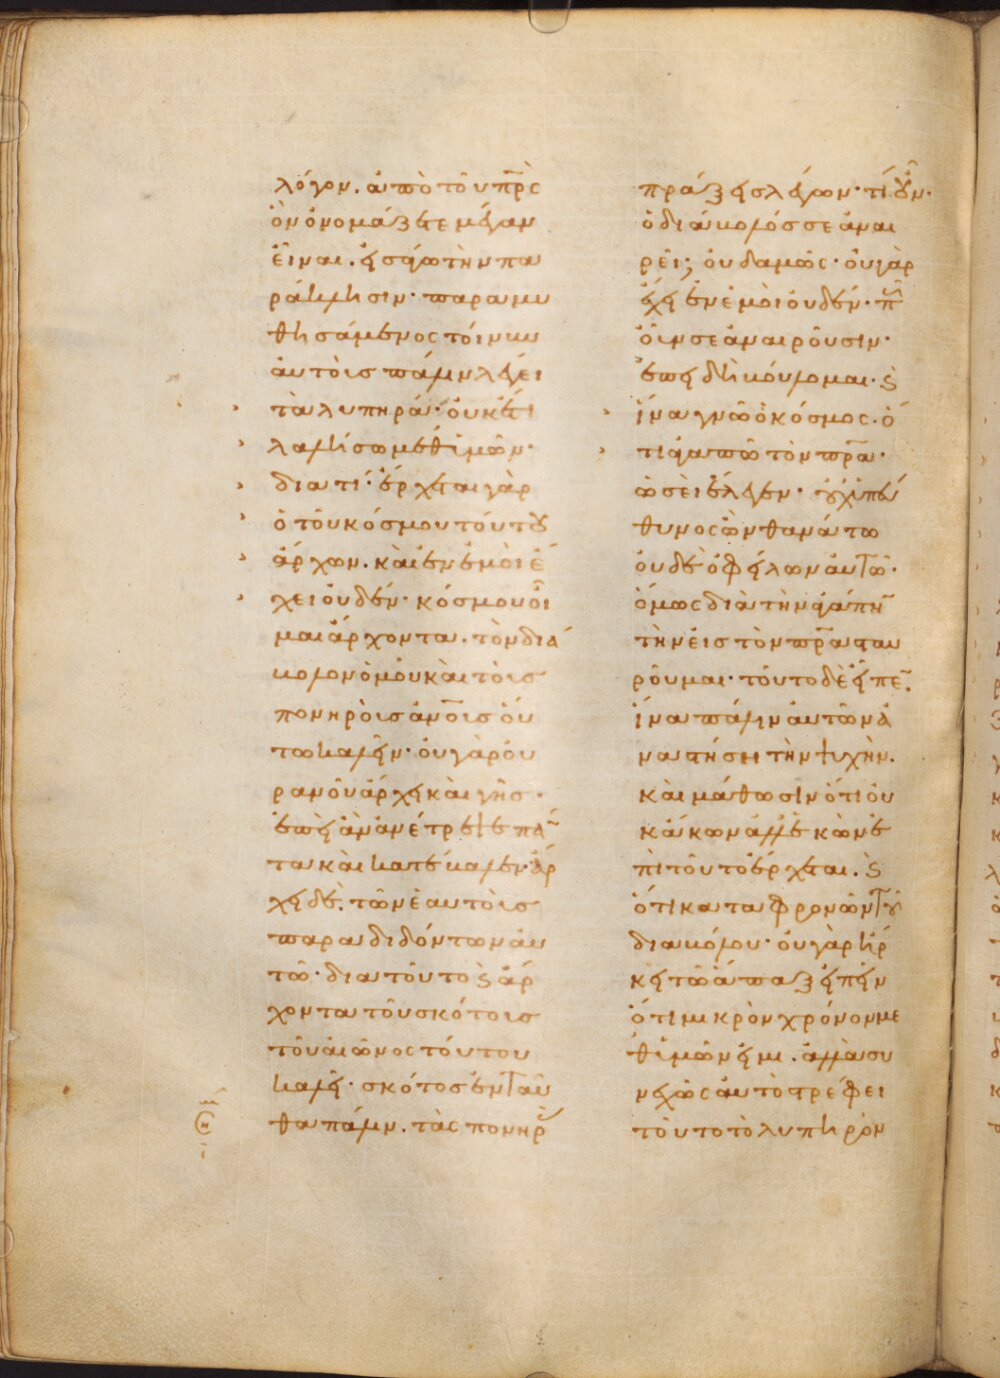 λόγον. ἀπὸ τοῦ πρ̅ς
ὃν ὀνομάζετε μέγαν
εἶναι. εἰσάγω τὴν πα
ράκλησιν· παραμυ
θησάμενος τοίνυν
αὐτοὺς πάλιν λέγει
τὰ λυπηρά· οὐκέτι
λαλήσω μεθ' ὑμῶν·
διατί· ἔρχεται γὰρ
ὁ τοῦ κόσμου τούτου
ἄρχων. καὶ ἐν ἐμοὶ ἔ
χει οὐδέν· κόσμου οἶ
μαι ἄρχοντα. τὸν διά
βολον ὁμοῦ καὶ τοὺς
πονηροὺς ἀν̅ους οὕ
τω καλεῖν· οὐ γὰρ οὐ
ρανοῦ ἄρχει καὶ γῆς·
ἐπεὶ ἂν ἀνέτρεψε πά̅
τα καὶ κατέβαλεν· ἄρ
χει δὲ. τῶν ἑαυτοὺς
παραδιδόντων αὐ
τῶ· διατοῦτο ϗ ἄρ
χοντα τοῦ σκότους
τοῦ αἰῶνος τούτου
καλεῖ· σκότος ἐνταῦ
θα πάλιν. τὰς πονηρ(ὰς)
πράξεις λέγων· τί οὖν·
ὁ διάβολός σε ἀναι
ρεῖ; οὐδαμῶς· οὐ γὰρ
ἔχει ἐν ἐμοὶ οὐδέν· π(ῶς)
οὖν σε ἀναιροῦσιν·
ἐπειδὴ βούλομαι· ϗ
ἵνα γνῶ ὁ κόσμος· ὅ
τι ἀγαπῶ τὸν πρ̅α·
ὡσεὶ ἔλεγεν· οὐχ ὑπεύ
θυνος ὢν θανάτω
οὐδὲ ὀφείλων αὐτῶ·
ὅμως διὰ τὴν ἀγάπη̅
τὴν εἰς τὸν πρ̅α σταυ
ροῦμαι· τοῦτο δὲ εἶπε̅.
ἵνα πάλιν αὐτῶν ἀ
ναστήση τὴν ψυχήν.
καὶ μάθωσιν ὅτι οὐ
κ ἄκων ἀλλ' ἑκὼν ἐ
πὶ τοῦτο ἔρχεται. ϗ
ὅτι καταφρονῶν τοῦ
διαβόλου· οὐ γὰρ ἤρ
κει τῶ ἅπαξ εἰπεῖν
ὅτι μικρὸν χρόνον με
θ' ὑμῶν εἰμι. ἀλλὰ συ
νεχῶς αὐτὸ στρέφει
τοῦτο τὸ λυπηρὸν